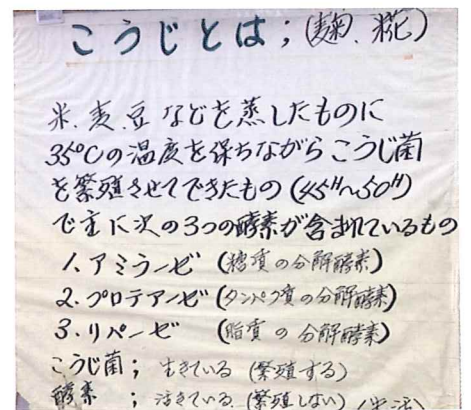 こうじとは；(麹、糀)
米、麦、豆などを蒸したものに
35℃の温度を保ちながらこうじ菌
を繁殖させてできたもの(45H~50H)
で主に次の3つの酵素が含まれているもの
1.アミラーゼ (糖質の分解酵素)
2.プロテアーゼ(タンパク質の分解酵素)
3.リパーゼ (脂質の分解酵素)
こうじ菌； 生きている (繁殖する)
酵素 ；活きている (繁殖しない)